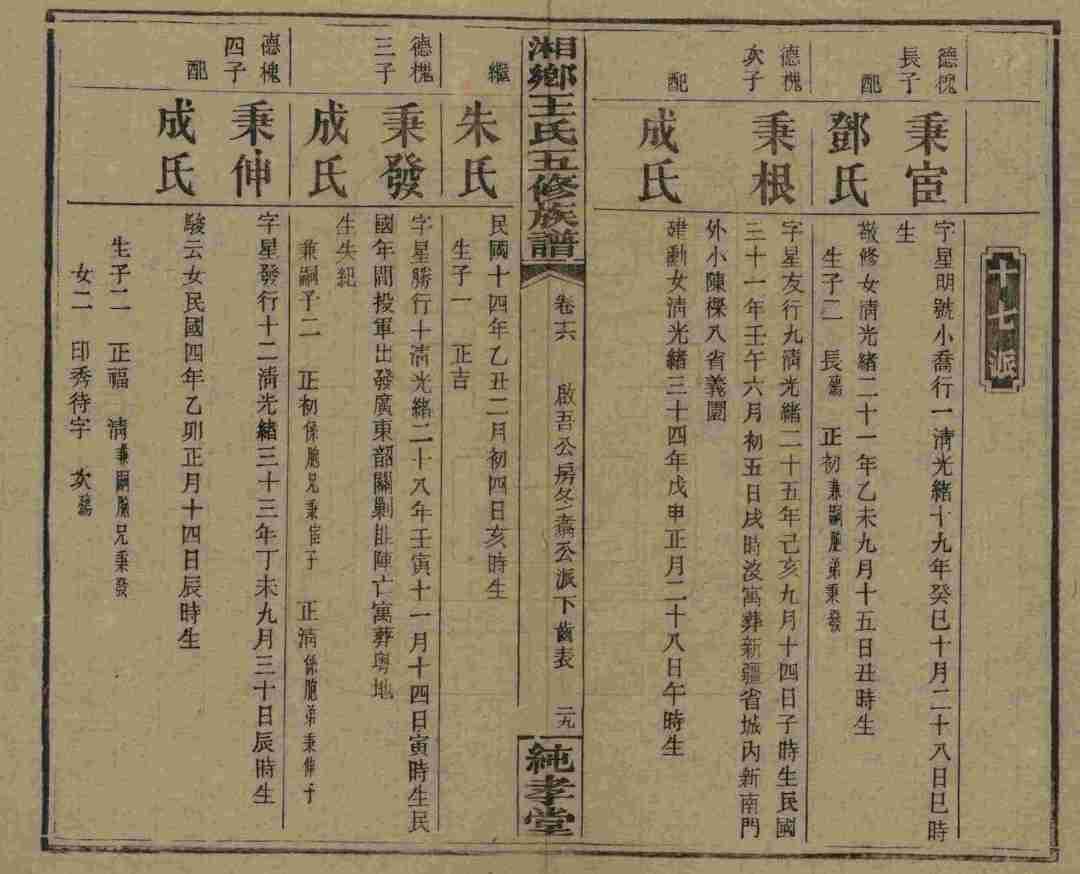 十七派
德槐
長子
秉宦
字星明號小喬行一清光緒十九年癸巳十月二十八日巳時
生
配
鄧氏
敬修女清光緒二十一年乙未九月十五日丑時生
生子二 長殤 正初兼嗣胞弟秉發
德槐
次子
秉根
字星友行九清光緒二十五年己亥九月十四日子時生民國
三十一年壬午六月初五日戌時沒寓葬新疆省城內新南門
外小陳樑八省義園
配
成氏
建勳女清光緒三十四年戊申正月二十八日午時生
湘鄉王氏五修族譜
卷六 啟吾公房冬喬公派下齒表 二九
純孝堂
繼
朱氏
民國十四年乙丑二月初四日亥時生
生子一 正吉
德槐
三子
秉發
字星勝行十清光緒二十八年壬寅十一月十四日寅時生民
國年間投軍出發廣東韶關剿 陣亡寓葬粵地
成氏
生失紀
兼嗣子二 正初係胞兄秉宦子 正清係胞弟秉伸子
德槐
四子
秉伸
字星發行十二清光緒三十三年丁未九月三十日辰時生
配
成氏
駿云女民國四年乙卯正月十四日辰時生
生子二 正福 清兼嗣胞兄秉發
女二 印秀待字 次殤